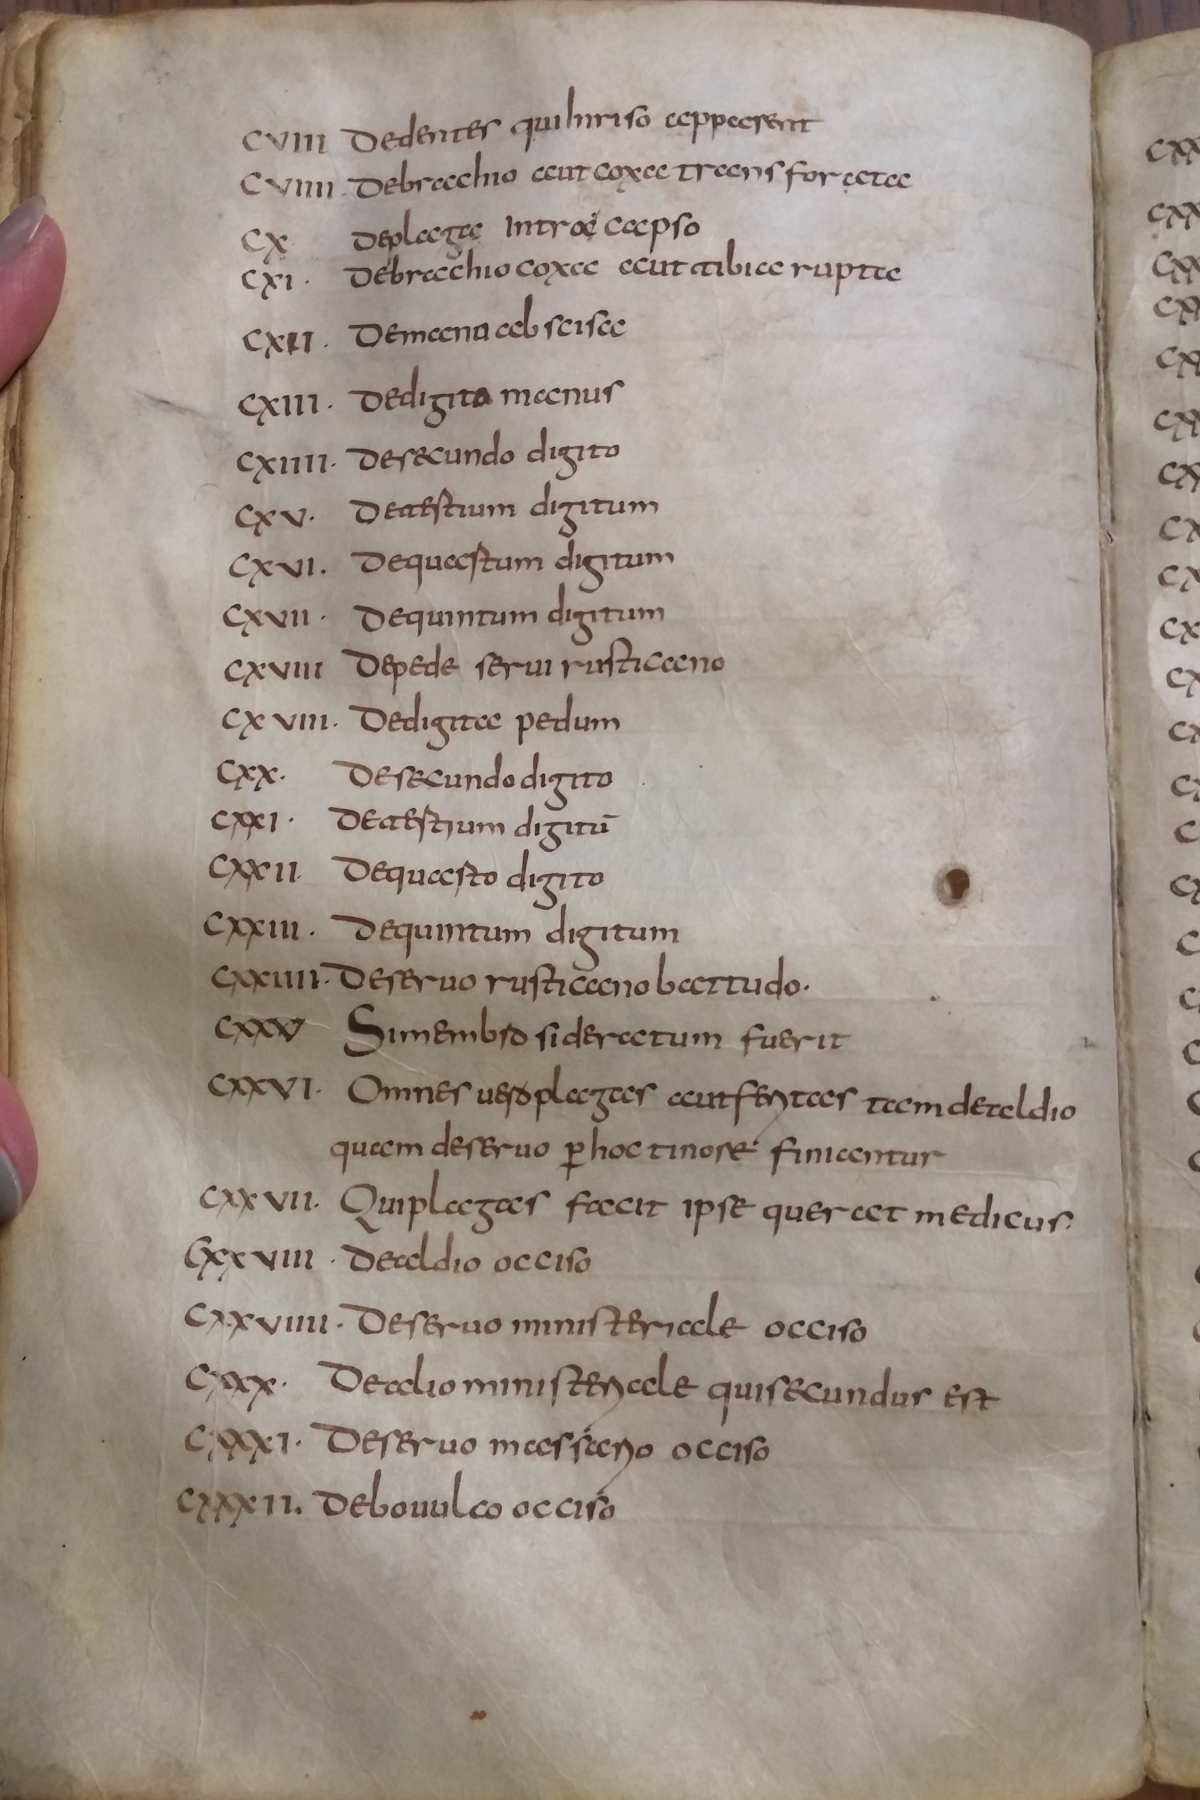 CVIII Dedentes qui Inriso apparent
CVIIII. Debrachio aut coxa trans forata
CX Deplaga Intro capso
CXI. Debrachio coxa aut tibia rupta
CXII. Demano abscisa
CXIII. Dedigito manus
CXIIII. Desecundo digito
CXV. Detertium digitum
CXVI. Dequartum digitum
CXVII. Dequintum digitum
CXVIII Depede serui rusticano
CXVIII. Dedigita pedum
CXX. Desecundo digito
CXXI. Detertium digitū
CXXII Dequarto digito
CXXIII. Dequintum digitum
CXXIIII. Deseruo rusticano battudo.
CXXV Simembro sideratum fuerit
CXXVI. Omnes uero plagas aut feritas tam de taldio
quam deseruo p̱ hoc tinore finiantur
CXXVII. Quiplagas facit ipse querat medicus.
CXXVIII. Dealdio occiso
CXXVIIII. Deseruo ministeriale occiso
CXXX. Dealio ministeriale quisecundus est
CXXXI. Deseruo massario occiso
CXXXII. Debouulco occiso
CXX
CXX
CXX
CXX
CXX
CXX
CXX
CX
CX
CX
CX
CX
CX
C
CX
C
C
C
C
C